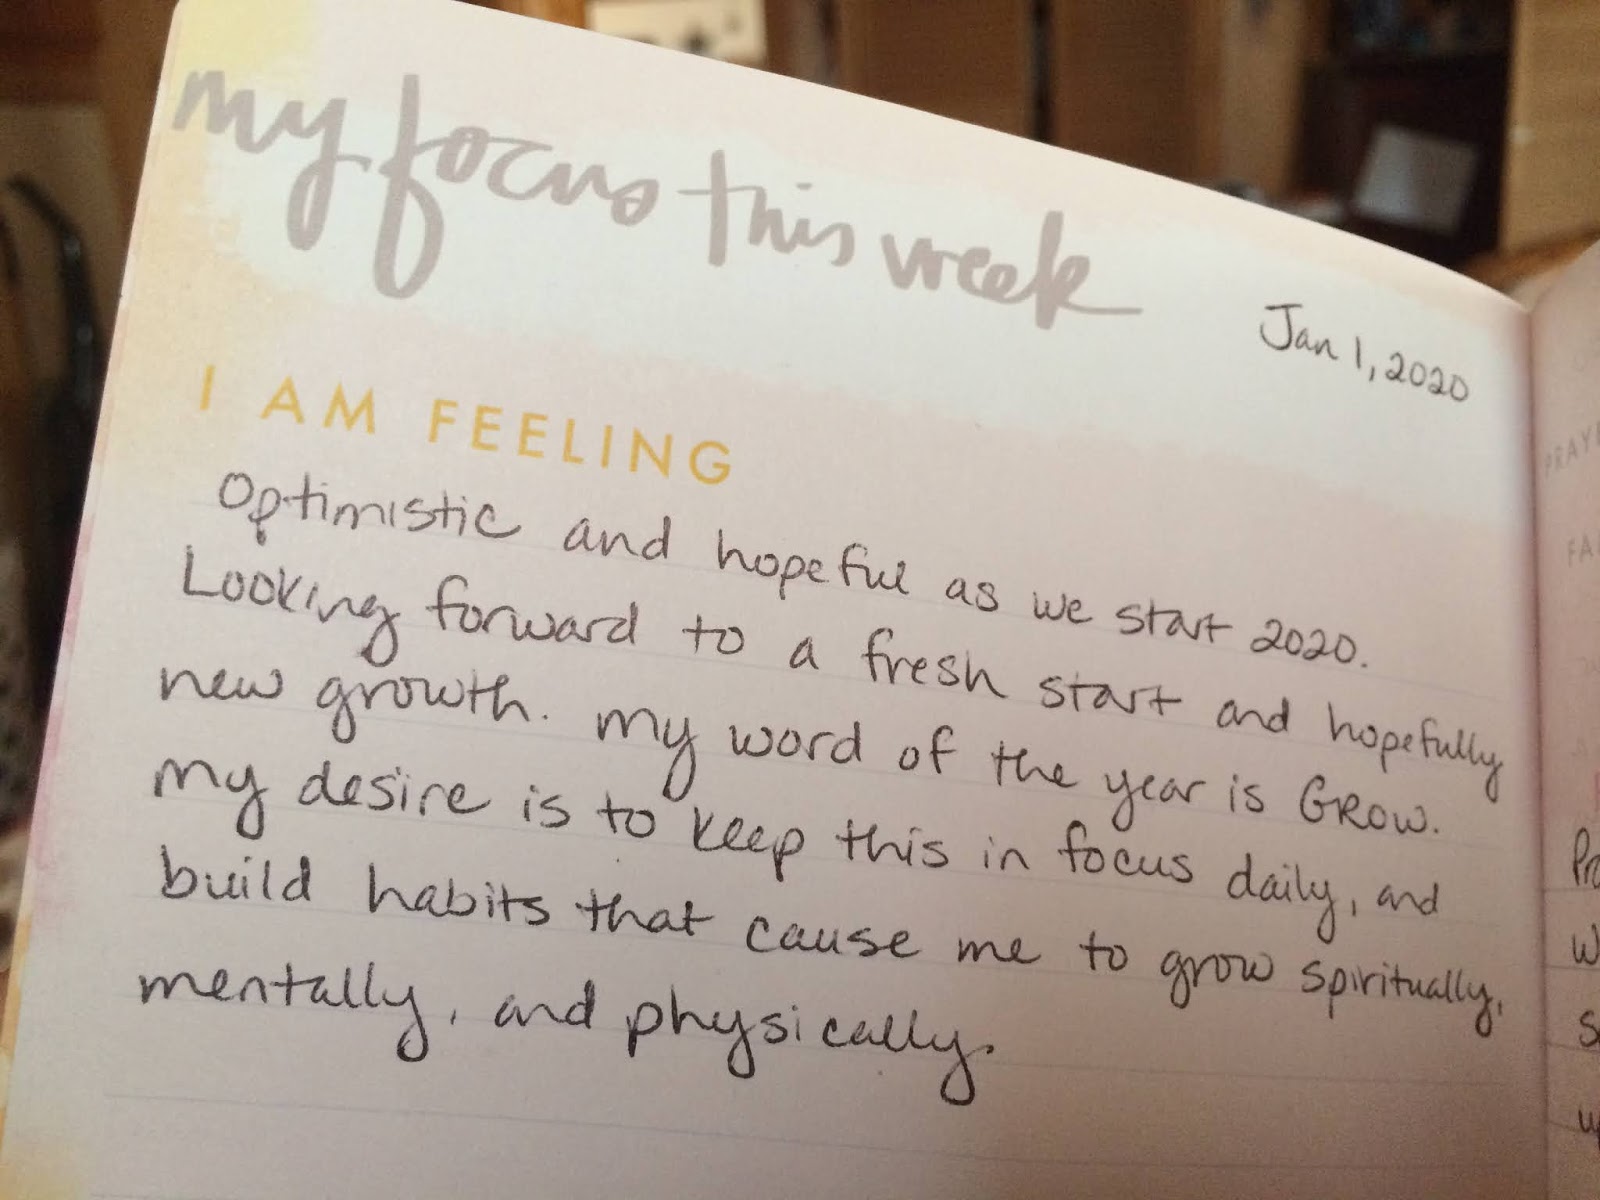 my focus this week
Jan 1, 2020
I AM FEELING
Optimistic and hopeful as we start 2020.
Looking forward to a fresh start and hopefully
new growth. My word of the year is GROW.
My desire is to keep this in focus daily, and
build habits that cause me to grow spiritually,
mentally, and physically.